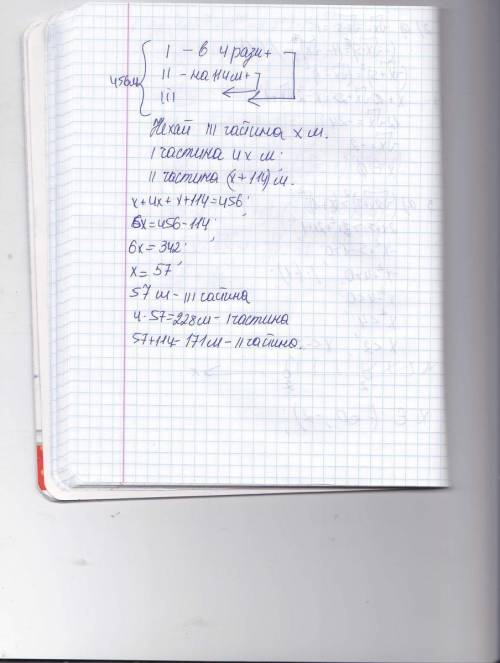 456м
I – в 4 рази+
II – на 114м+
III
Нехай III частина x м.
I частина 4x м.
II частина (x+114) м.
x+4x+x+114=456;
6x=456-114;
6x=342;
x=57;
57 м – III частина
4·57=228м – I частина
57+114=171м – II частина.